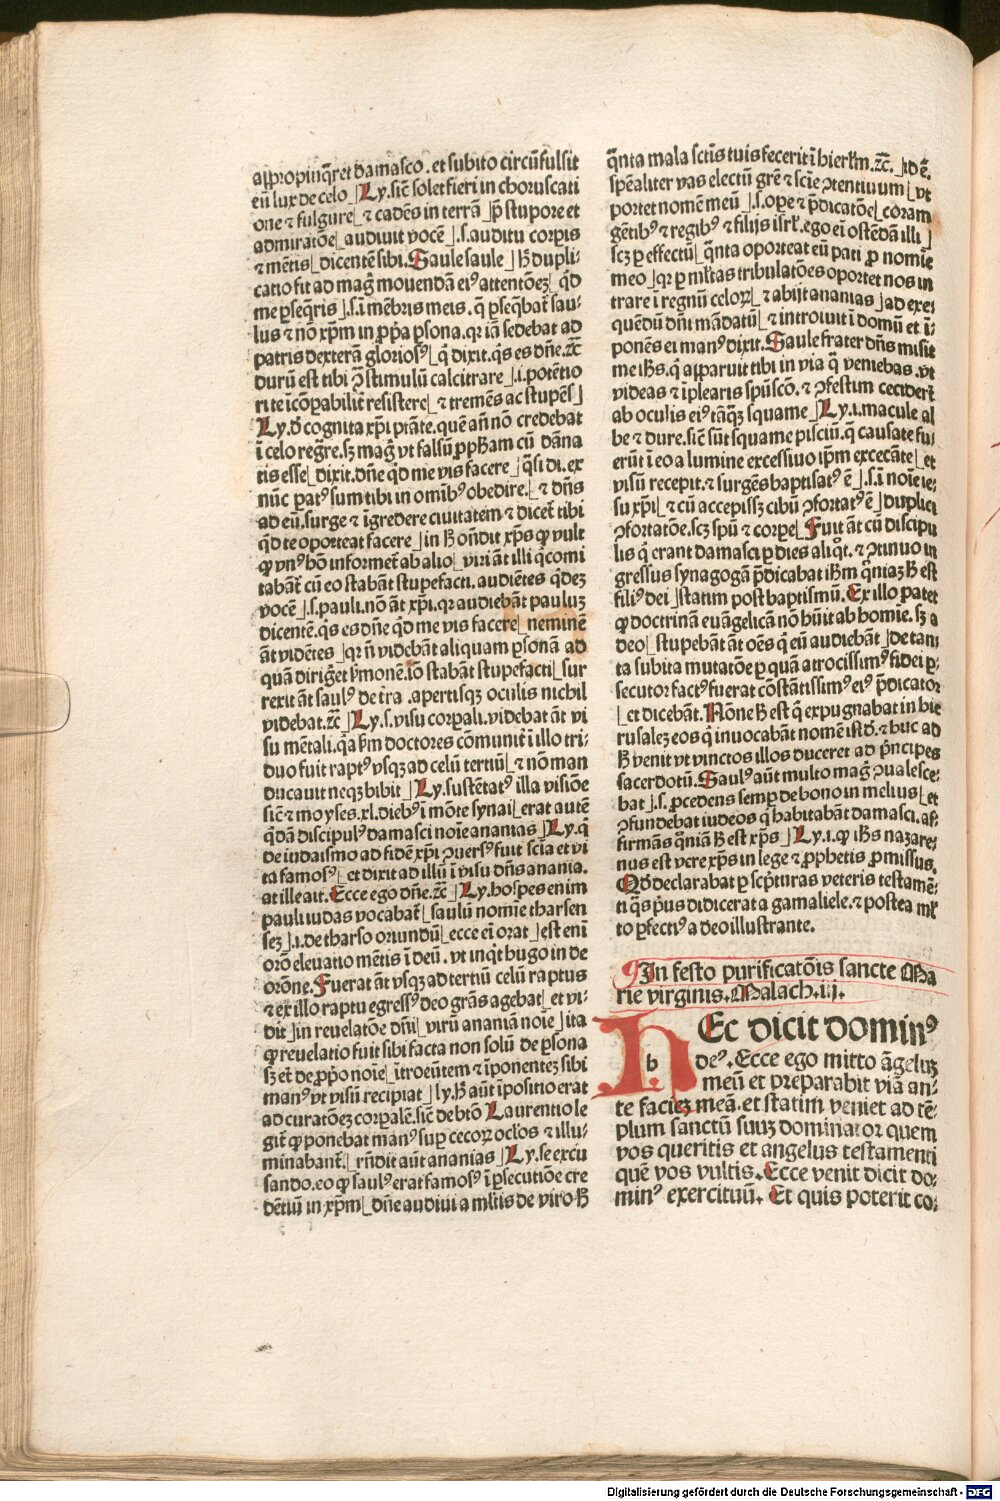 appropinq̄ret damasco. et subito circūfulsit
eū lux de celo ⌋ Ly. siē solet fieri in choruscati
one ⁊ fulgure ⌊ ⁊ cadēs in terrā ⌋ p̄ stupore et
admiratōe ⌊ audiuit vocē ⌋ .s. auditu corpis
⁊ mētis ⌊ dicentē sibi. Saule saule ⌋ ħ dupli-
catio fit ad mag̃ mouendā eiꝰ attentōeꝫ ⌊ qͥd
me ꝑseq̄ris ⌋ .s. ī mēbris meis. q̄ ꝑseq̄bat̃ sau-
lus ⁊ nō xp̄m in ꝓp̄a ꝑsona. qꝛ iā sedebat ad
patris dexterā gloriosꝰ ⌊ q̄ dixit. qͥs es dn̄e. ⁊c̄
durū est tibi ꝯ̄ stimulū calcitrare ⌋ .i. potētio
ri te īcōꝑabilit̃ resistere ⌊ ⁊ tremēs ac stupēs ⌋
Ly. Ꝺ cognita xp̄i ptāte. quē an̄ nō credebat
ī celo reg̃re. sꝫ mag̃ vt falsū ꝓpħam cū dāna
tis esse ⌊ dixit. dn̄e qͥd me vis facere ⌋ q̄si di. ex
nūc patꝰ sum tibi in om̄ibꝰ obedire. ⌊ ⁊ dn̄s
ad eū. surge ⁊ īgredere ciuitatem ⁊ dicet̃ tibi
qͥd te oporteat facere ⌋ in ħ on̄dit xp̄s ꝙ vult
ꝙ vnꝰ hō informet̃ ab alio ⌊ viri āt illi q̇ comi
tabāt̃ cū eo stabāt stupefacti. audiētes q̇deꝫ
vocē ⌋ .s. pauli. nō āt xp̄i. qꝛ audiebāt pauluꝫ
dicentē. qͥs es dn̄e qͥd me vis facere ⌊ neminē
āt vidētes ⌋ qꝛ n̄ videbāt aliquam ꝑsonā ad
quā dirig̃et ẜmonē. iō stabāt stupefacti ⌊ sur
rexit āt saulꝰ de t̃ra . apertisqꝫ oculis nichil
videbat. ⁊c̄ ⌋ Ly. s. visu corꝑali. videbat āt vi
su mētali. q̄a ẜm doctores cōmunit̃ ī illo tri-
duo fuit raptꝰ vsqꝫ ad celū tertiū ⌊ ⁊ nō man
ducauit neqꝫ bibit ⌋ Ly. sustētatꝰ illa visiōe
siē ⁊ moyses. xl. diebꝰ ī mōte synai ⌊ erat autē
q̇dā discipulꝰ damasci noīe ananias ⌋ Ly. q̇
de iudaismo ad fidē xp̄i ꝯuersꝰ fuit sc̄ia et vi
ta famosꝰ ⌊ et dixit ad illū ī visu dn̄s anania.
at ille ait. Ecce ego dn̄e. ⁊c̄ ⌋ Ly. hospes enim
pauli iudas vocabat̃ ⌊ saulū nomīe tharsen
seꝫ ⌋ .i. de tharso oriundū ⌊ ecce ei orat ⌋ est enī
orō eleuatio mētis ī deū. vt inqͥt hugo in de
orōne. Fuerat āt vsqꝫ ad tertiū celū raptus
⁊ ex illo raptu egressꝰ deo grās agebat ⌊ et vi-
dit ⌋ in reuelatōe dn̄i ⌊ virū ananiā noīe ⌋ ita
ꝙ reuelatio fuit sibi facta non solū de ꝑsona
sꝫ et̄ de ꝓp̄o noīe ⌊ ītroeūtem ⁊ īponenteꝫ sibi
manꝰ vt visū recipiat ⌋ ly. ħ aūt īpositio erat
ad curatōeꝫ corꝑalē. siē de btō Laurentio le
git̃ ꝙ ponebat manꝰ suꝑ cecoꝝ oclos ⁊ illu-
minabant̃. ⌊ rn̄dit aūt ananias ⌋ Ly. se excu
sando. eo ꝙ saulꝰ erat famosꝰ ī ꝑsecutiōe cre
dētiū in xp̄m ⌊ dn̄e audiui a mltis de viro ħ
q̄nta mala sctīs tuis fecerit ī hierl̄m. ⁊c̄. ⌋ Id ē.
sp̄ealiter vas electū gr̄e ⁊ sc̄ie ꝯtentiuum ⌊ vt
portet nomē meū ⌋ .s. oꝑe ⁊ p̄dicatōe ⌊ coram
gētibꝰ ⁊ regibꝰ ⁊ filijs isrl̄. ego ei ostēdā illi ⌋
scꝫ ꝑ effectū ⌊ q̄nta oporteat eū pati ꝓ nomīe
meo ⌋ qꝛ ꝑ mltas tribulatōes oportet nos in
trare ī regnū celoꝝ ⌊ ⁊ abijt ananias ⌋ ad exe-
quēdū dn̄i mādatū ⌊ ⁊ introiuit ī domū et ī-
ponēs ei manꝰ dixit. Saule frater dn̄s misit
me iħs. q̇ apparuit tibi in via q̄ veniebas. vt
videas ⁊ īplearis spūscō. ⁊ ꝯfestim cecider̄t
ab oculis eiꝰ tāq̄ꝫ squame ⌋ Ly. i. macule al
be ⁊ dure. siē sūt squame pisciū. q̄ causate fu-
erūt ī eo a lumine excessiuo ip̄m excecāte ⌊ et
visū recepit. ⁊ surgēs baptisatꝰ ē ⌋ .s. ī noīe ie-
su xp̄i ⌊ ⁊ cū accepissꝫ cibū ꝯfortatꝰ ē ⌋ duplici
ꝯfortatōe. scꝫ spū ⁊ corꝑe ⌊ Fuit āt cū discipu
lis q̇ erant damasci ꝑ dies aliqͦt. ⁊ ꝯtinuo in
gressus synagogā p̄dicabat iħm q̄niaꝫ ħ est
filiꝰ dei ⌋ statim post baptismū. Ex illo patet
ꝙ doctrinā euāgelicā nō hūit ab homīe. sꝫ a
deo ⌊ stupebāt āt oēs q̇ eū audiebāt ⌋ de tam
ta subita mutatōe ꝑ quā atrocissimꝰ fidei ꝑ-
secutor factꝰ fuerat cōstātissimꝰ eiꝰ p̄dicator
⌊ et dicebāt. Nōne ħ est q̇ expugnabat in hie
rusaleꝫ eos q̇ inuocabāt nomē istd̄. ⁊ huc ad
ħ venit vt vinctos illos duceret ad p̄ncipes
sacerdotū. Saulꝰ aūt multo mag̃ ꝯualesce-
bat ⌋ .s. ꝓcedens semꝑ de bono in melius ⌊ et
ꝯfundebat iudeos q̇ habitabāt damasci. af-
firmās q̄niā ħ est xp̄s ⌋ Ly. i. ꝙ iħs nazare-
nus est vere xp̄s in lege ⁊ ꝓphetis ꝓmissus.
Qd̄ declarabat ꝑ scp̄turas veteris testamē-
ti q̄s pͥus didicerat a gamaliele. ⁊ postea ml̄
to ꝑfectiꝰ a deo illustrante.
¶ In festo purificatōis sancte Ma
rie virginis. Malach. iij.
HEc dicit dominꝰ
deꝰ. Ecce ego mitto āgeluꝫ
meū et preparabit viā an-
te facieꝫ meā. et statim veniet ad tē-
plum sanctū suuꝫ dominator quem
vos queritis et angelus testamenti
quē vos vultis. Ecce venit dicit do-
minꝰ exercituū. Et quis poterit co-
Digitalisierung gefördert durch die Deutsche Forschungsgemeinschaft - DFG